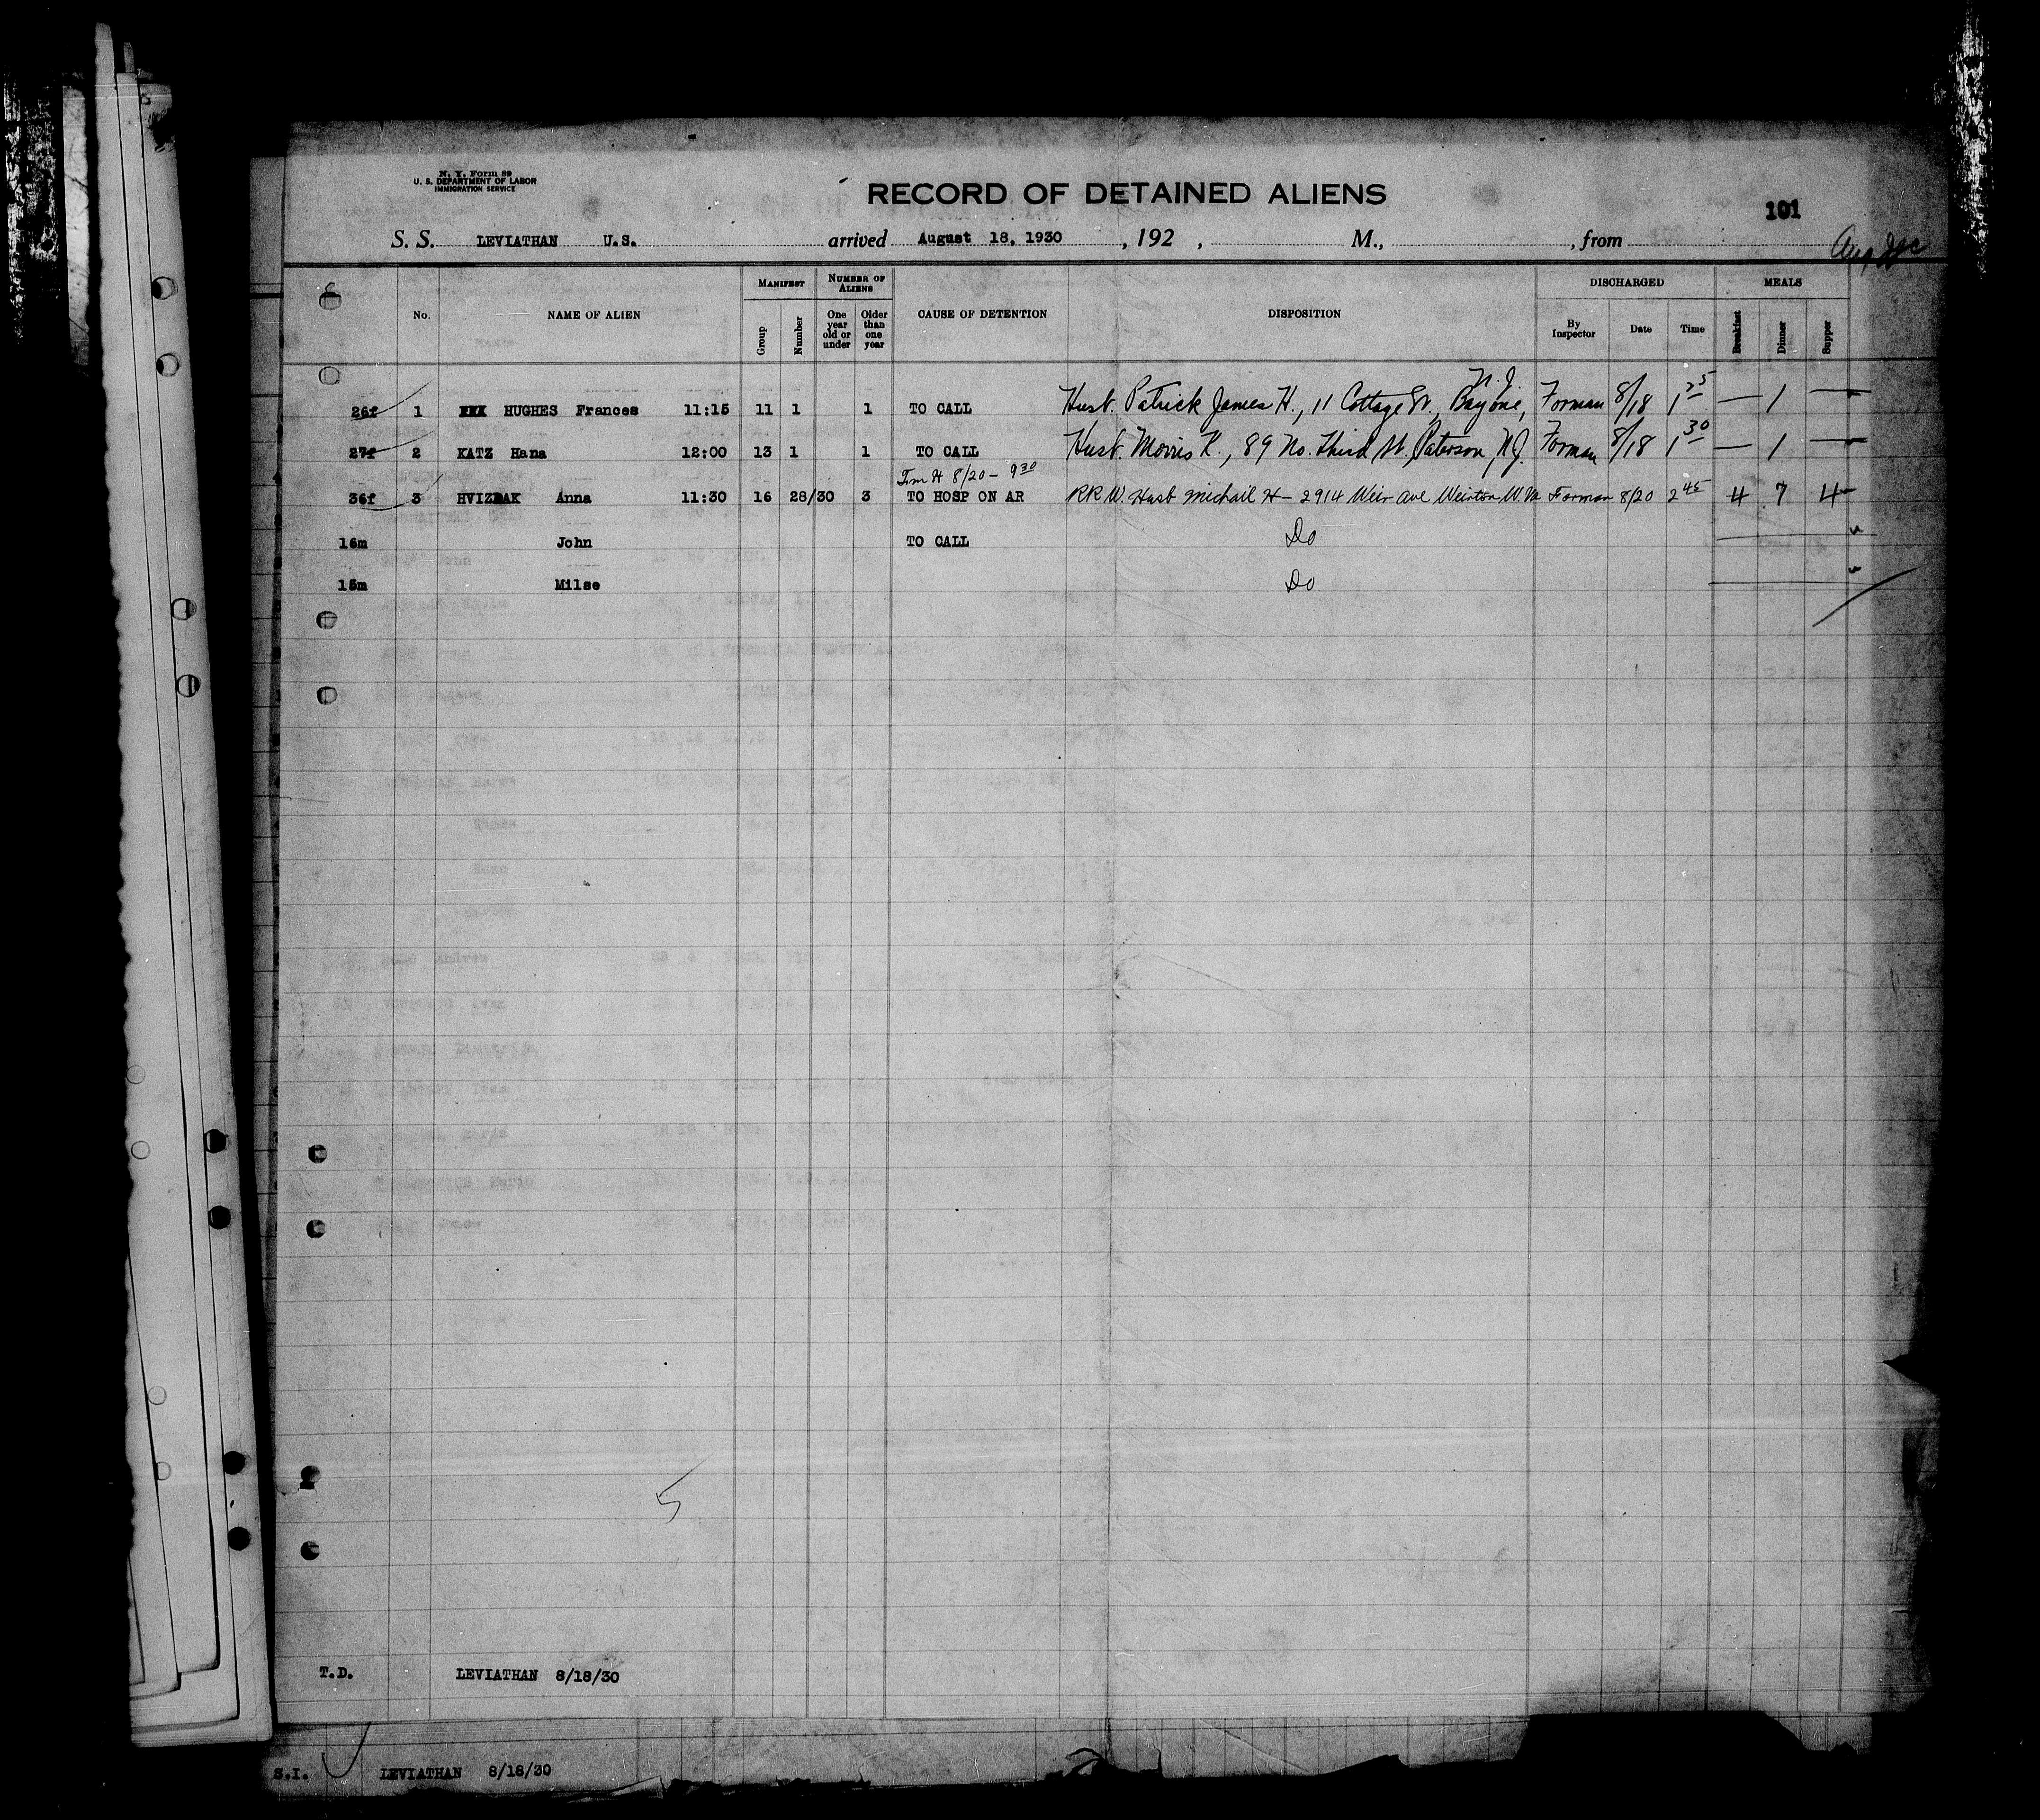 N. Y. Form 89
U. S. DEPARTMENT OF LABOR
IMMIGRATION SERVICE
RECORD OF DETAINED ALIENS
101
S. S. LEVIATHAN U.S. arrived August 18, 1930, 192 , M., , from
No. NAME OF ALIEN MANIFEST Group Number NUMBER OF ALIENS One year old or under Older than one year CAUSE OF DETENTION DISPOSITION DISCHARGED By Inspector Date Time MEALS Breakfast Dinner Supper
N.J.
26f 1 HUGHES Frances 11:15 11 1 1 TO CALL Husb. Patrick James H., 11 Cottage St., Bayone, Forman 8/18 1 25 — 1 —
27f 2 KATZ Hana 12:00 13 1 1 TO CALL Husb. Morris K., 89 No. Third St. Paterson, N.J. Forman 8/18 1 30 — 1 —
Fm H 8/20 - 9 30
36f 3 HVIZDAK Anna 11:30 16 28/30 3 TO HOSP ON AR RR W. Husb Michail H - 2914 Weir Ave Weirton W.Va Forman 8/20 2 45 4 7 4
16m John TO CALL Do
15m Milse Do
5
T.D. LEVIATHAN 8/18/30
S.I. LEVIATHAN 8/18/30